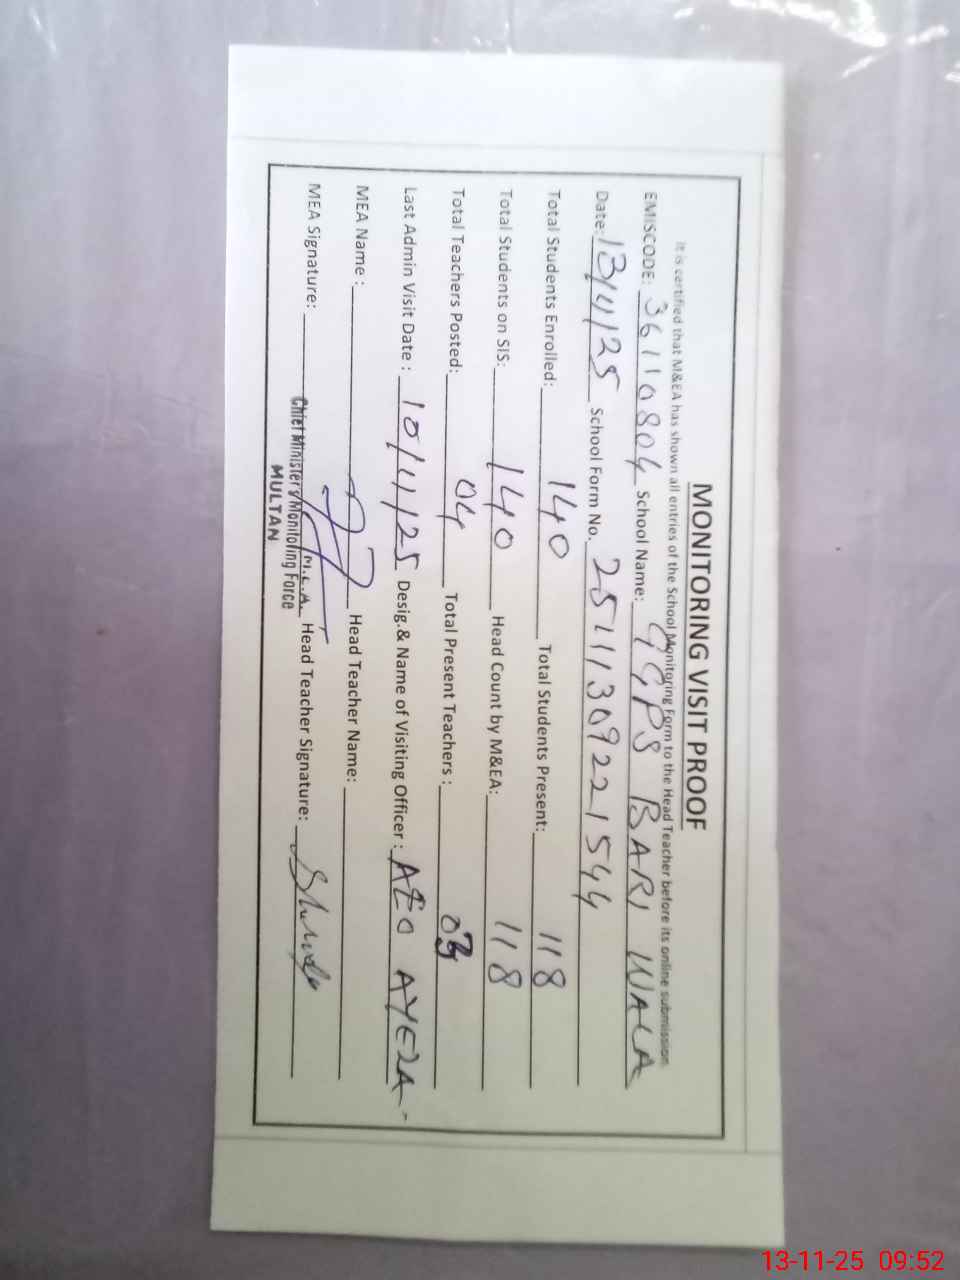 MONITORING VISIT PROOF
It is certified that M&EA has shown all entries of the School Monitoring Form to the Head Teacher before its online submission
EMISCODE: 36110804 School Name: GGPS BARI WALA
Date: 13/11/25 School Form No. 25111309221544
Total Students Enrolled: 140 Total Students Present: 118
Total Students on SIS: 140 Head Count by M&EA: 118
Total Teachers Posted: 04 Total Present Teachers : 03
Last Admin Visit Date : 10/11/25 Desig.& Name of Visiting Officer : AEO AYEZA
MEA Name : Head Teacher Name:
MEA Signature: M.E.A. Head Teacher Signature:
Chief Minister's Monitoring Force
MULTAN
13-11-25 09:52